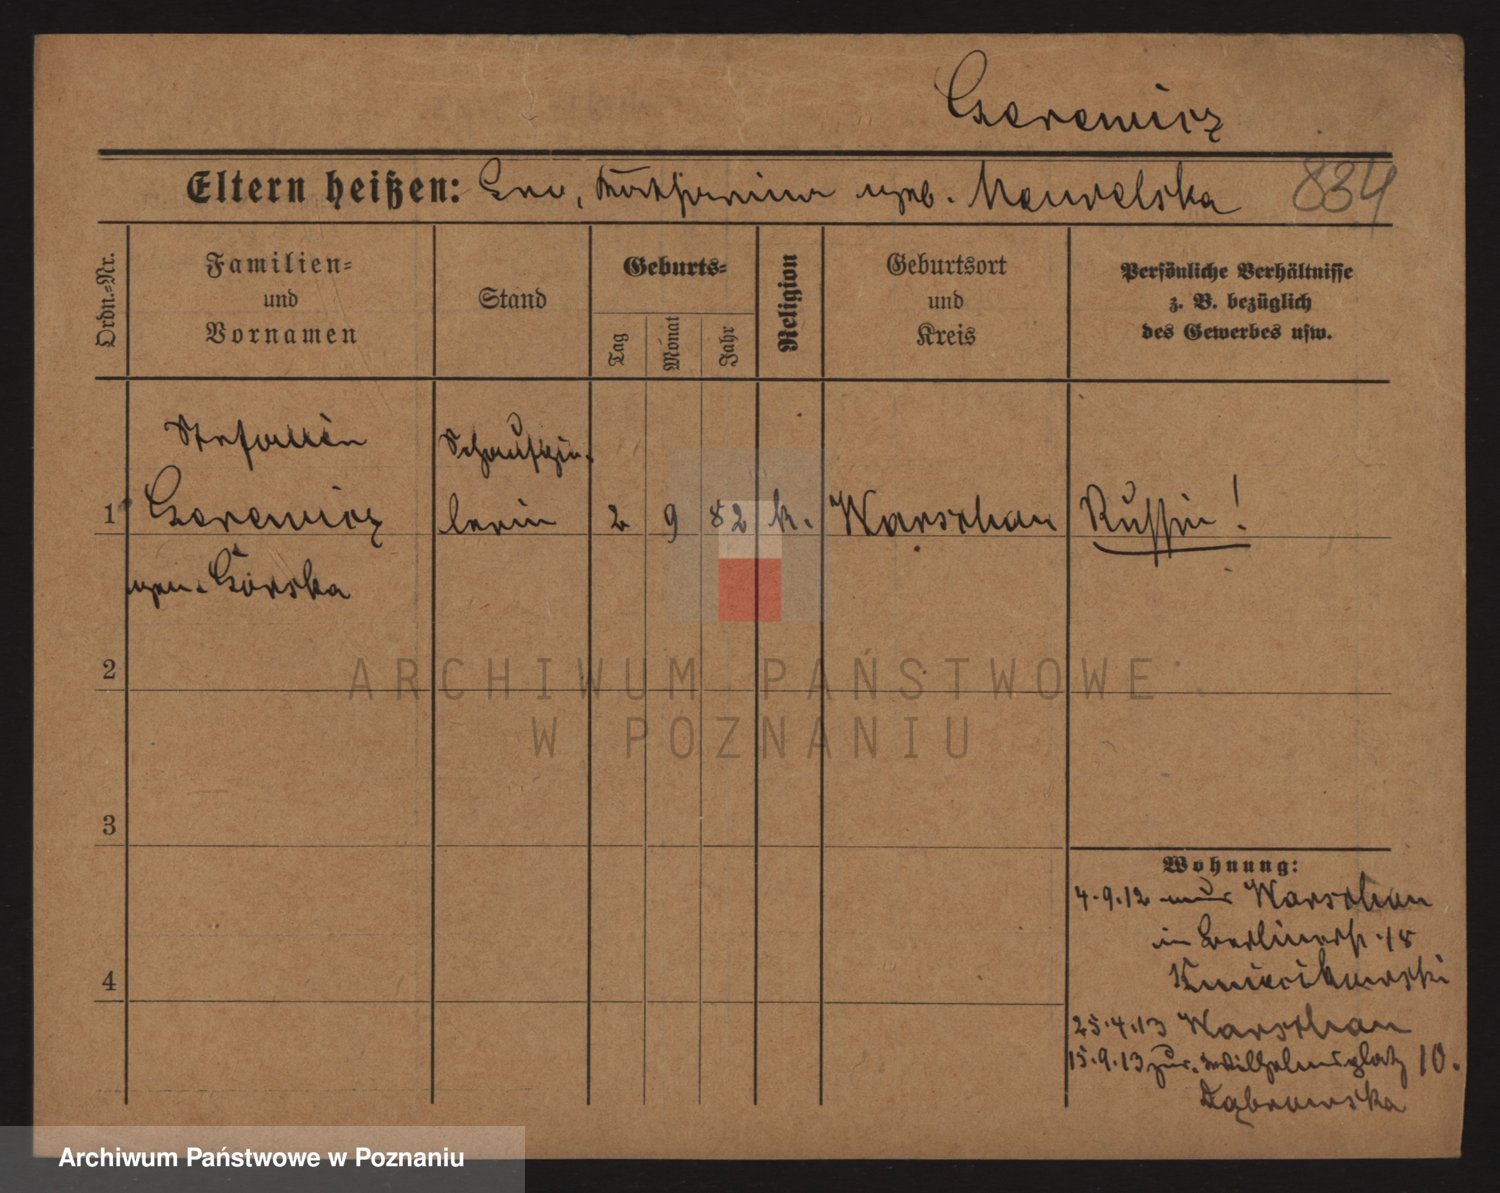 Gerewicz
Eltern heißen: Leo, Katharina geb. Nawelska 834
Ordn.=Nr.
Familien=
und
Vornamen
Stand
Geburts=
Tag
Monat
Jahr
Religion
Geburtsort
und
Kreis
Persönliche Verhältnisse
z. B. bezüglich
des Gewerbes usw.
Schauspie-
1 Gerewicz lerin 2 9 82 k. Warschau Russin!
gen. Górska
2
3
4
Wohnung:
4.9.12 aus Warschau
in Berlinerstr. 18
25.4.13 Warschau
15.9.13 zur. Wilhelmsplatz 10.
Dąbrowska
ARCHIWUM PAŃSTWOWE
W POZNANIU
Archiwum Państwowe w Poznaniu